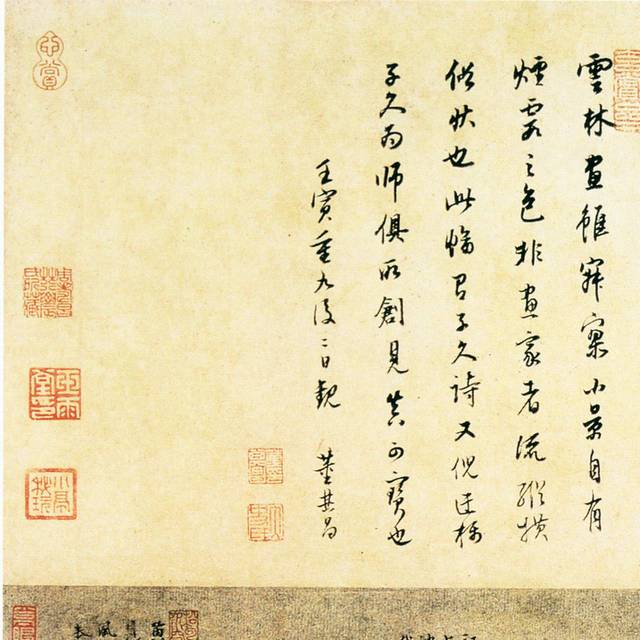 雲林畫雖寂寥小景自有
煙霞之色非畫家者流縱横
俗狀也此幅有子久詩又倪迂稱
子久為師俱所創見真可寶也
壬寅重九後二日觀 董其昌